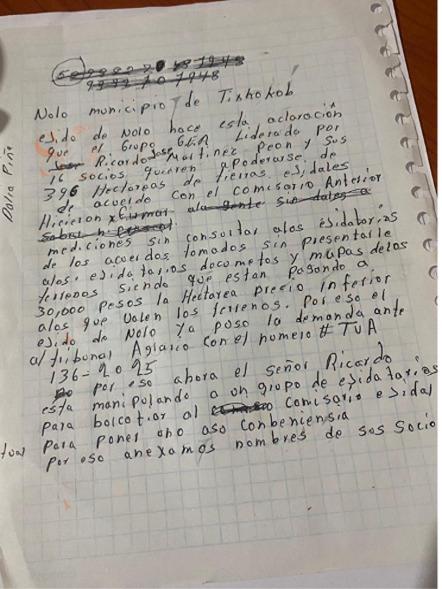 9999707948
Nolo municipio de Tixkokob
ejido de Nolo hace esta aclaración
que el Grupo GEA Liderado por
Ricardo Jose Martinez Peon y Sus
16 socios quieren apoderarse de
396 Hectareas de tierras ejidales
de acuerdo con el comisario Anterior
Hicieron
mediciones sin consoltar alos ejidatarias
de los acuerdos tomados sin presentarle
alos ejidatarios docometos y mapas delos
terrenos siendo que estan pagando a
30,000 pesos la Hectarea precio inferior
alos que valen los terrenos. Por eso el
ejido de Nolo ya poso la demanda ante
al tribunal Aglario con el nomero # TUA
136-2025
por eso ahora el señor Ricardo
esta manipolando a un grupo de ejidatarios
para boicotiar al comisario ejidal
para poner ono aso conbeniensia
por eso anexamos nombres de sos Socio
Dalia Piña
tual